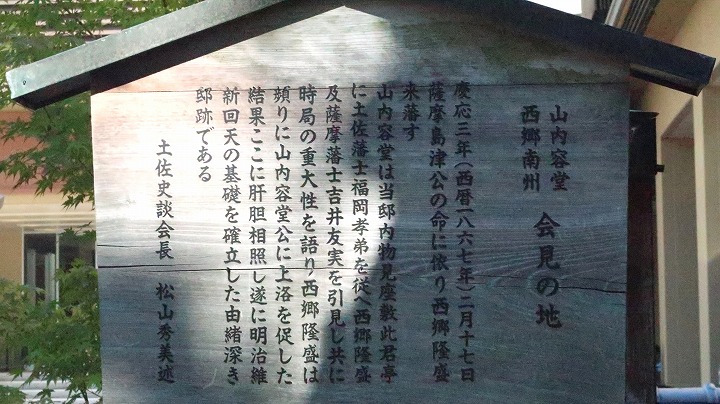 山内容堂
西郷南州
会見の地
慶応三年(西暦一八六七年)二月十七日
薩摩島津公の命に依り西郷隆盛
来藩す
山内容堂は当邸内物見座敷此君亭
に土佐藩士福岡孝弟を従へ西郷隆盛
及薩摩藩士吉井友実を引見し共に
時局の重大性を語り、西郷隆盛は
頻りに山内容堂公に上洛を促した
結果ここに肝胆相照し遂に明治維
新回天の基礎を確立した由緒深き
邸跡である
土佐史談会長 松山秀美述